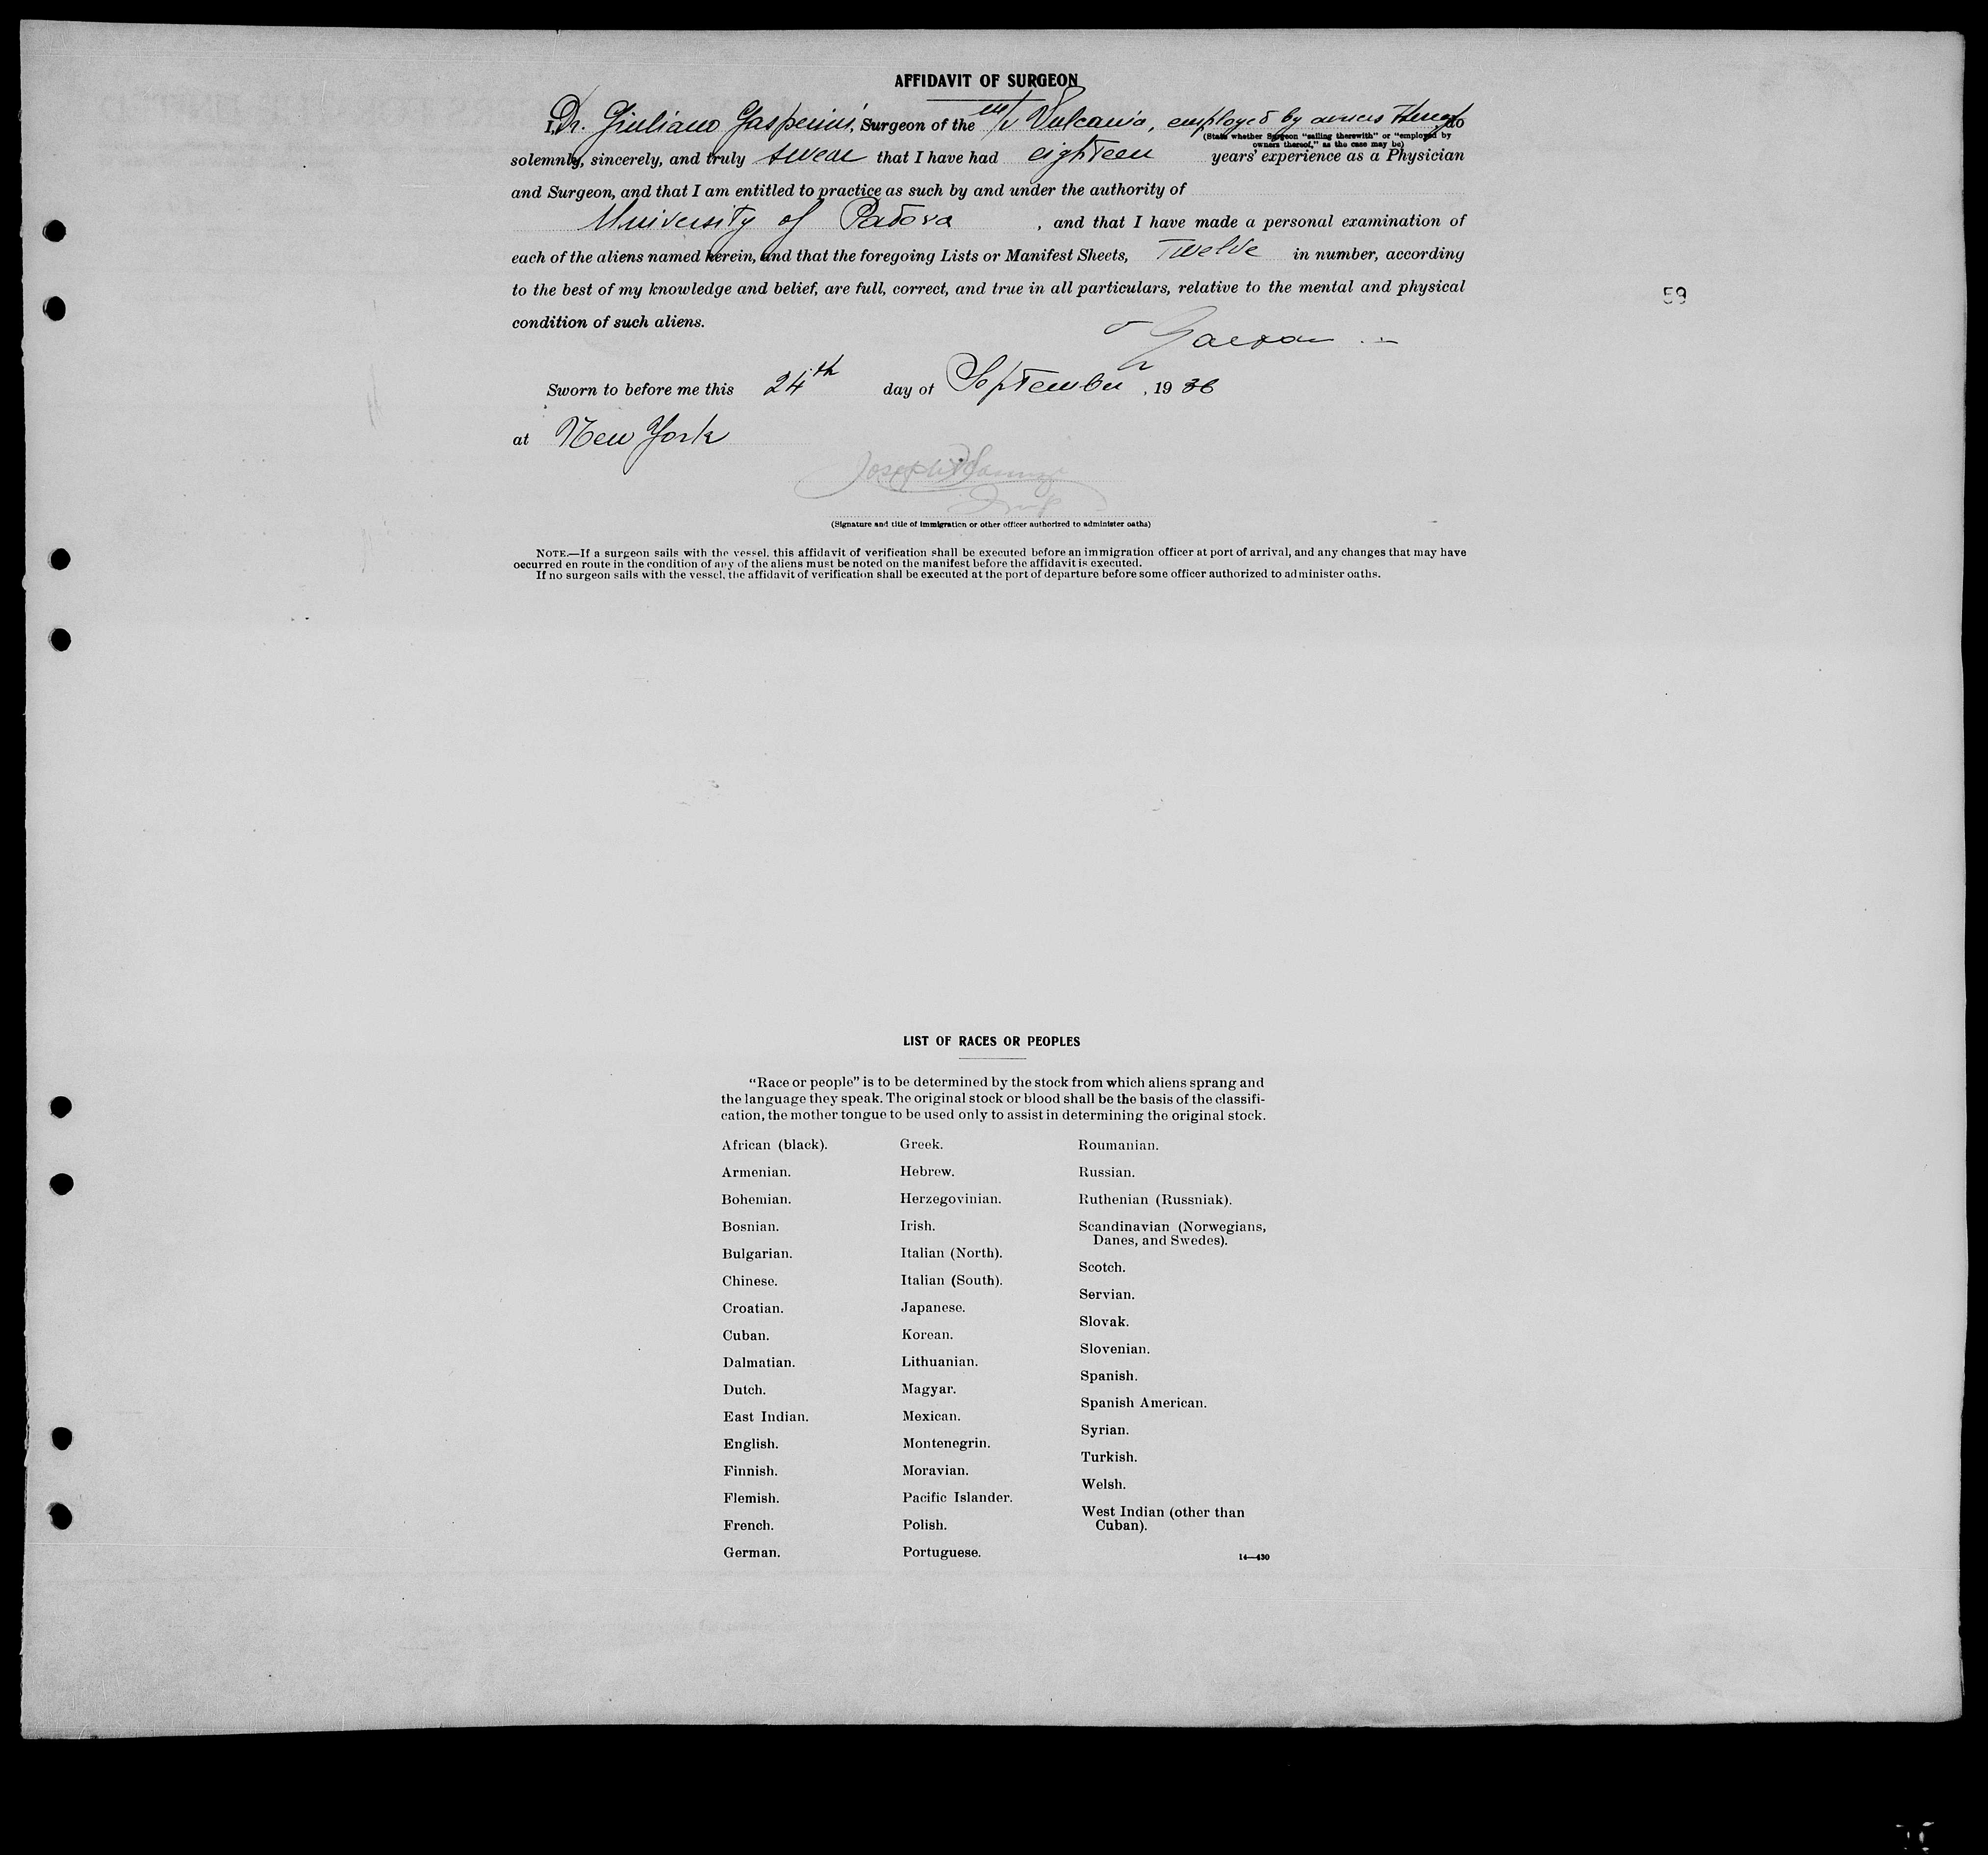 AFFIDAVIT OF SURGEON
I, Dr. Giuliano Gasperini, Surgeon of the m/v Vulcania, employed by owners thereof do
(State whether Surgeon "sailing therewith" or "employed by
owners thereof," as the case may be)
solemnly, sincerely, and truly swear that I have had eighteen years' experience as a Physician
and Surgeon, and that I am entitled to practice as such by and under the authority of
University of Padova, and that I have made a personal examination of
each of the aliens named herein, and that the foregoing Lists or Manifest Sheets, Twelve in number, according
to the best of my knowledge and belief, are full, correct, and true in all particulars, relative to the mental and physical
59
condition of such aliens.
Sworn to before me this 24th day of September, 1936
at New York
Joseph
(Signature and title of immigration or other officer authorized to administer oaths)
NOTE.—If a surgeon sails with the vessel, this affidavit of verification shall be executed before an immigration officer at port of arrival, and any changes that may have
occurred en route in the condition of any of the aliens must be noted on the manifest before the affidavit is executed.
If no surgeon sails with the vessel, the affidavit of verification shall be executed at the port of departure before some officer authorized to administer oaths.
LIST OF RACES OR PEOPLES
"Race or people" is to be determined by the stock from which aliens sprang and
the language they speak. The original stock or blood shall be the basis of the classifi-
cation, the mother tongue to be used only to assist in determining the original stock.
African (black).
Armenian.
Bohemian.
Bosnian.
Bulgarian.
Chinese.
Croatian.
Cuban.
Dalmatian.
Dutch.
East Indian.
English.
Finnish.
Flemish.
French.
German.
Greek.
Hebrew.
Herzegovinian.
Irish.
Italian (North).
Italian (South).
Japanese.
Korean.
Lithuanian.
Magyar.
Mexican.
Montenegrin.
Moravian.
Pacific Islander.
Polish.
Portuguese.
Roumanian.
Russian.
Ruthenian (Russniak).
Scandinavian (Norwegians,
Danes, and Swedes).
Scotch.
Servian.
Slovak.
Slovenian.
Spanish.
Spanish American.
Syrian.
Turkish.
Welsh.
West Indian (other than
Cuban).
14—430